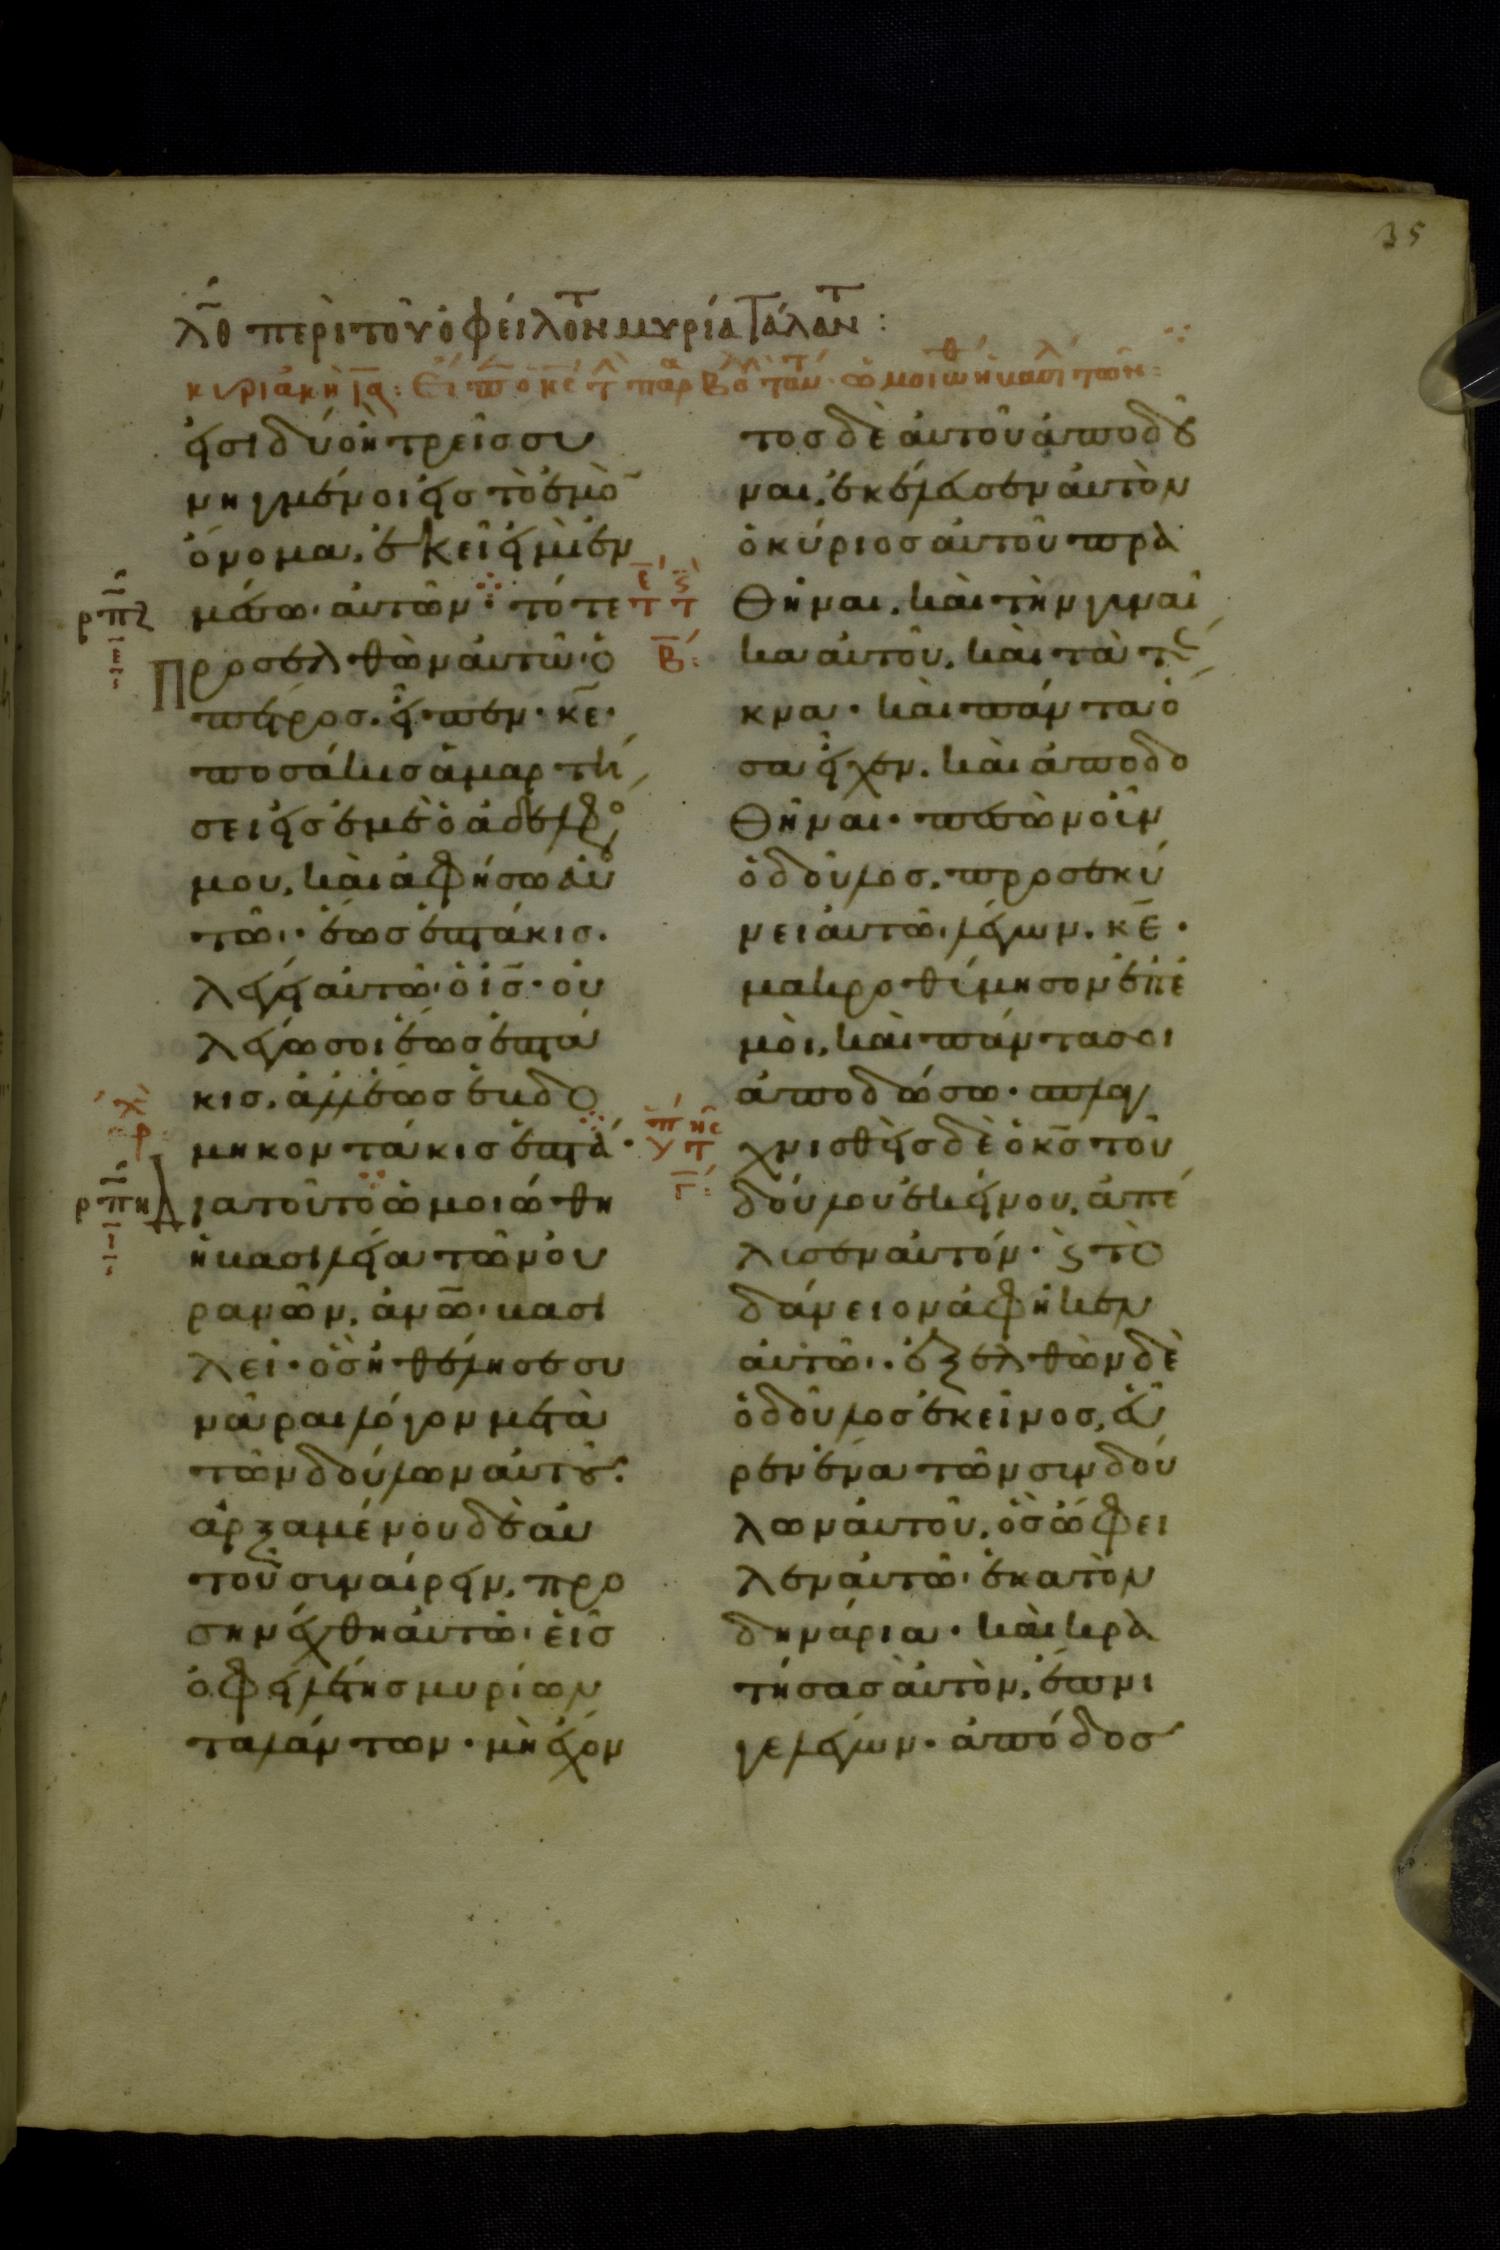 35
λ̅θ περὶ τοῦ ὀφείλοντ μυρία Ταλάντ :
κυριακὴ ια : Εἶπ ὁ κ̅ς τ παρβο ταύτ · ὡμοιώθ ἡ βασιλ τῶν :
εἰσι δύο ἢ τρεῖς συ
νηγμένοι εἰς τὸ ἐμὸ̅
ὄνομα, ἐκεῖ εἰμὶ ἐν
μέσω αὐτῶν · τότε
Προσελθὼν αὐτῶ ὁ
πέτρος · εἶπεν · κ̅ε ·
ποσάκις ἁμαρτή
σει εἰς ἐμὲ ὁ ἀδελφό
μου, καὶ ἀφήσω αὐ
τῶ · ἕως ἑπτάκις ·
λέγει αὐτῶ ὁ ι̅ς · οὐ
λέγω σοι ἕως ἑπτά
κις · ἀλλ ἕως ἑβδο
μηκοντάκις ἑπτά ·
Διατοῦτο ὡμοιώθη
ἡ βασιλεία τῶν οὐ
ρανῶν, ἀν̅ω βασι
λεῖ · ὃς ἠθέλησε συ
νᾶραι λόγον μετὰ
τῶν δούλων αὐτοῦ ·
ἀρξαμένου δὲ αὐ
τοῦ συναίρειν, προ
σηνέχθη αὐτῶ εἷς
ὀφειλέτης μυρίων
ταλάντων · μὴ ἔχον
τος δὲ αὐτοῦ ἀποδοῦ
ναι, ἐκέλευσεν αὐτὸν
ὁ κύριος αὐτοῦ πρα
θῆναι, καὶ τὴν γυναῖ
κα αὐτοῦ, καὶ τὰ τέ
κνα · καὶ πάντα ὅ
σα εἶχεν, καὶ ἀποδο
θῆναι · πεσὼν οὖν
ὁ δοῦλος, προσεκύ
νει αὐτῶ λέγων · κ̅ε ·
μακροθύμησον ἐπ ἐ
μοὶ, καὶ πάντα σοι
ἀποδώσω · σπλαγ
χνισθεὶς δὲ ὁ κ̅ς τοῦ
δούλου ἐκείνου, ἀπέ
λυσεν αὐτόν · ϗ τὸ
δάνειον ἀφῆκεν
αὐτῶ · ἐξελθὼν δὲ
ὁ δοῦλος ἐκεῖνος, εὗ
ρεν ἕνα τῶν συνδού
λων αὐτοῦ, ὃς ὤφει
λεν αὐτῶ ἑκατὸν
δηνάρια · καὶ κρα
τήσας αὐτὸν, ἔπνι
γε λέγων · ἀπόδος
ρ̅π̅ζ
ρ̅π̅η